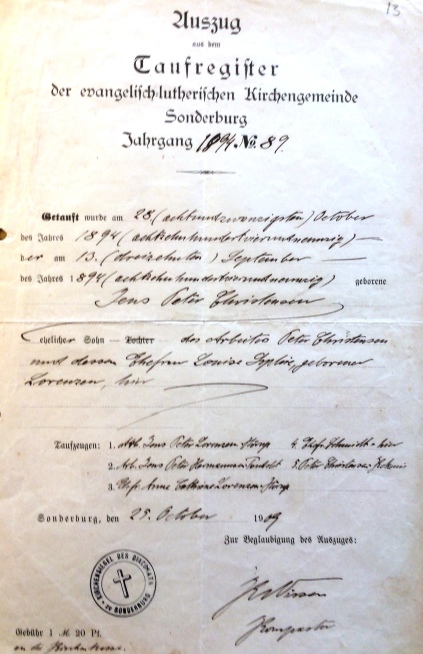 13
Auszug
aus dem
Taufregister
der evangelisch-lutherischen Kirchengemeinde
Sonderburg
Jahrgang 1894 No. 89.
Getauft wurde am 28. (achtundzwanzigsten) October
des Jahres 1894 (achtzehnhundertvierundneunzig) —
der am 13. (dreizehnten) September —
des Jahres 1894 (achtzehnhundertvierundneunzig) geborene
Jens Peter Christensen
ehelicher Sohn — Tochter — des Arbeiters Peter Christensen
und dessen Ehefrau Louise geborene
Lorenzen, hier
Taufzeugen: 1. Jens Peter Lorenzen 4. Schmidt - hier
2. Arb. Jens Peter Hermannsen 5. Peter Christensen
3. Anne Cathrine Lorenzen
Sonderburg, den 25. October 1909
Zur Beglaubigung des Auszuges:
KIRCHENSIEGEL DES DIACONATS ZU SONDERBURG
Nissen
Gebühr 1 M 20 Pf.
an die Kirchenkasse.